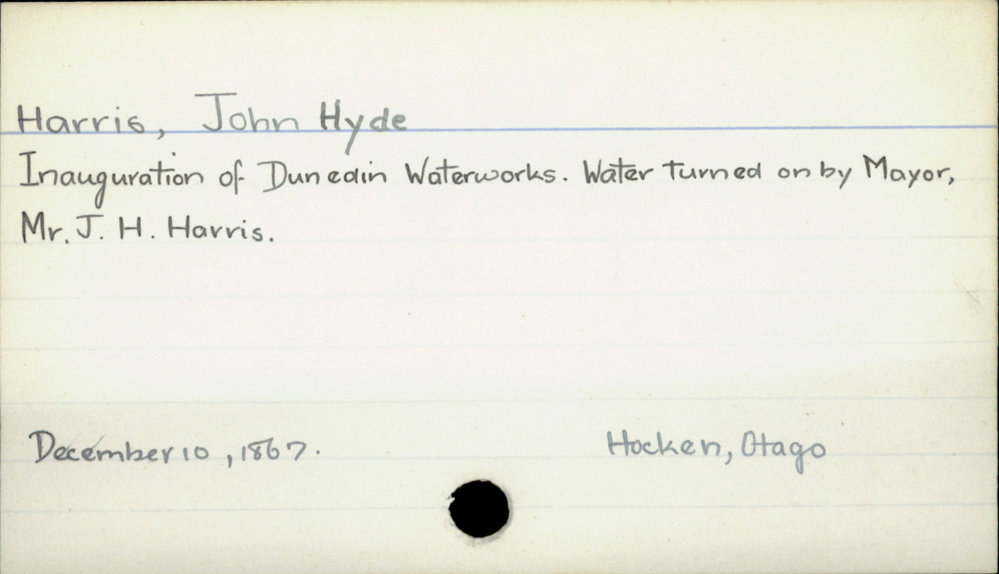 Harris, John Hyde
Inauguration of Dunedin Waterworks. Water turned on by Mayor,
Mr. J. H. Harris.
December 10, 1867.
Hocken, Otago